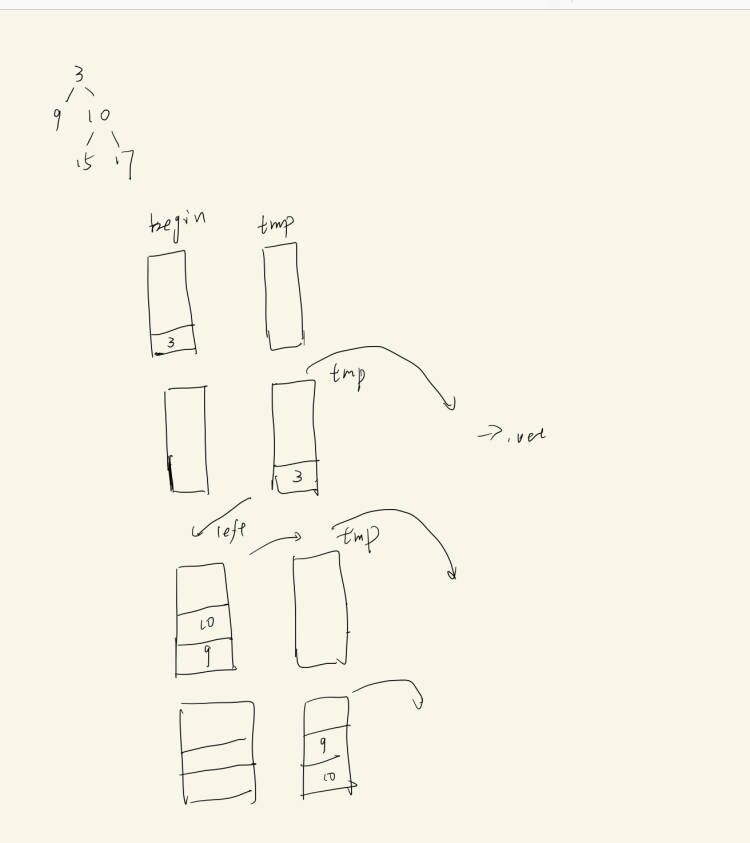 3
9 10
15 17
begin tmp
3
tmp
3
left
tmp
10
9
9
10